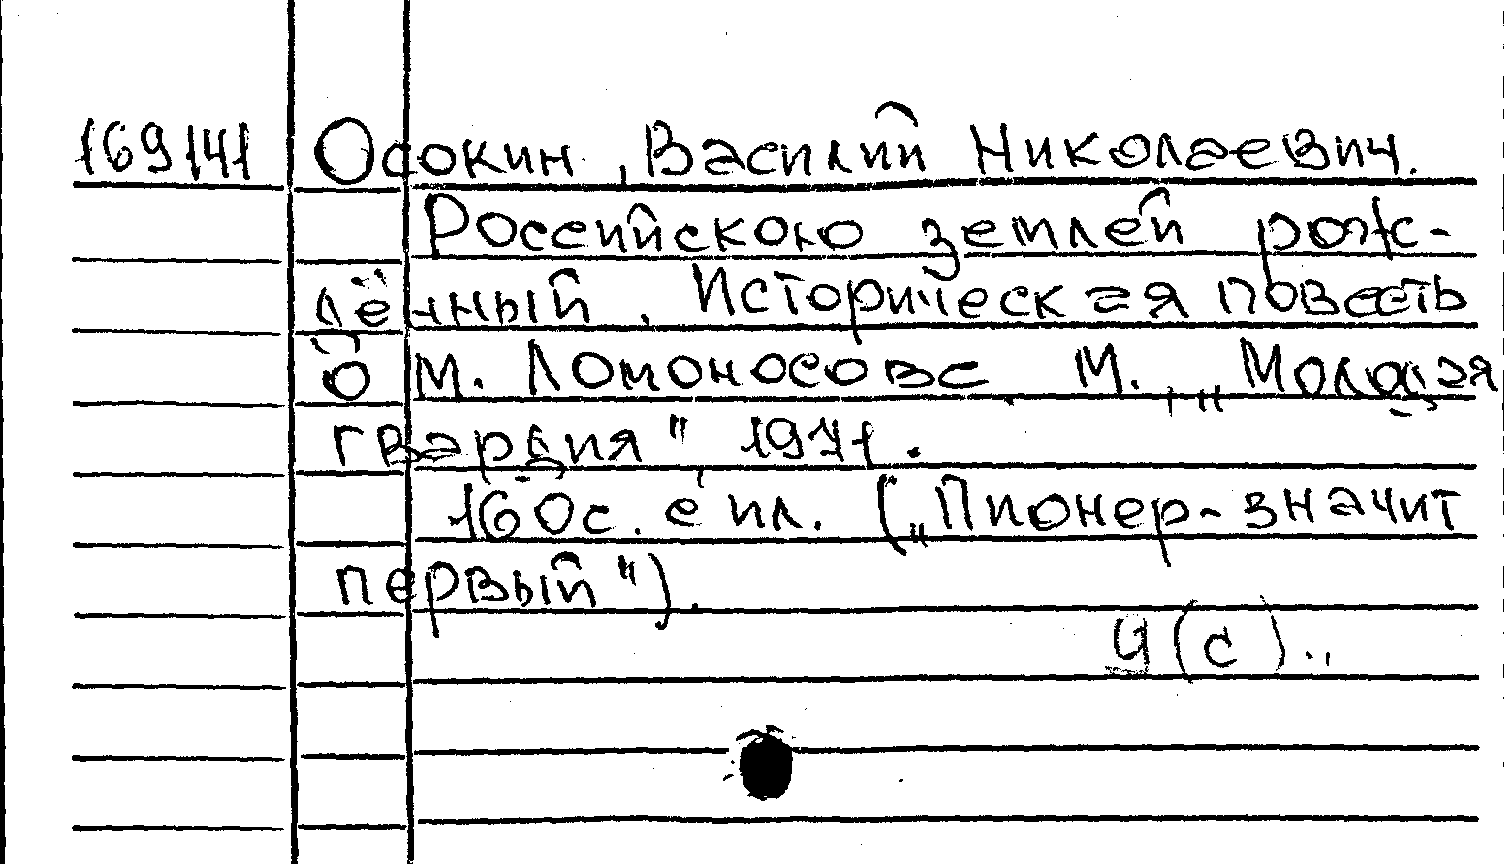 169141 Осокин, Василий Николаевич.
Российскою землей рож-
дённый. Историческая повесть
о М. Ломоносове. М. „Молодая
гвардия" 1971.
160с. с ил. („Пионер-значит
первый").